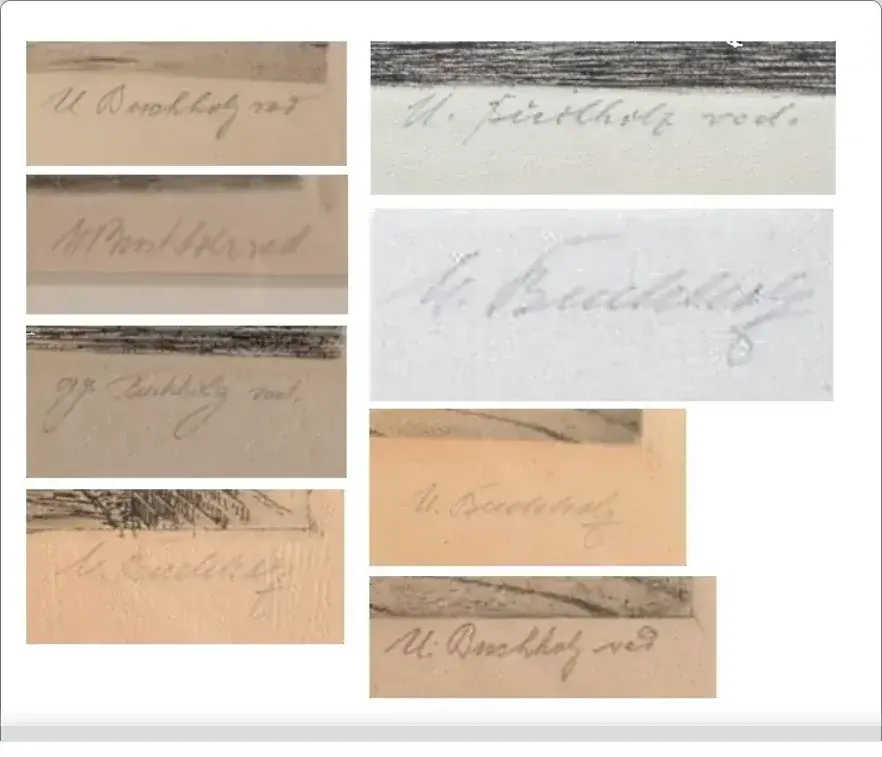 U Buchholz rad
U. Buchholz rad.
U. Buchholz
Buchholz rad.
U. Buchholz
U. Buchholz
U. Buchholz rad